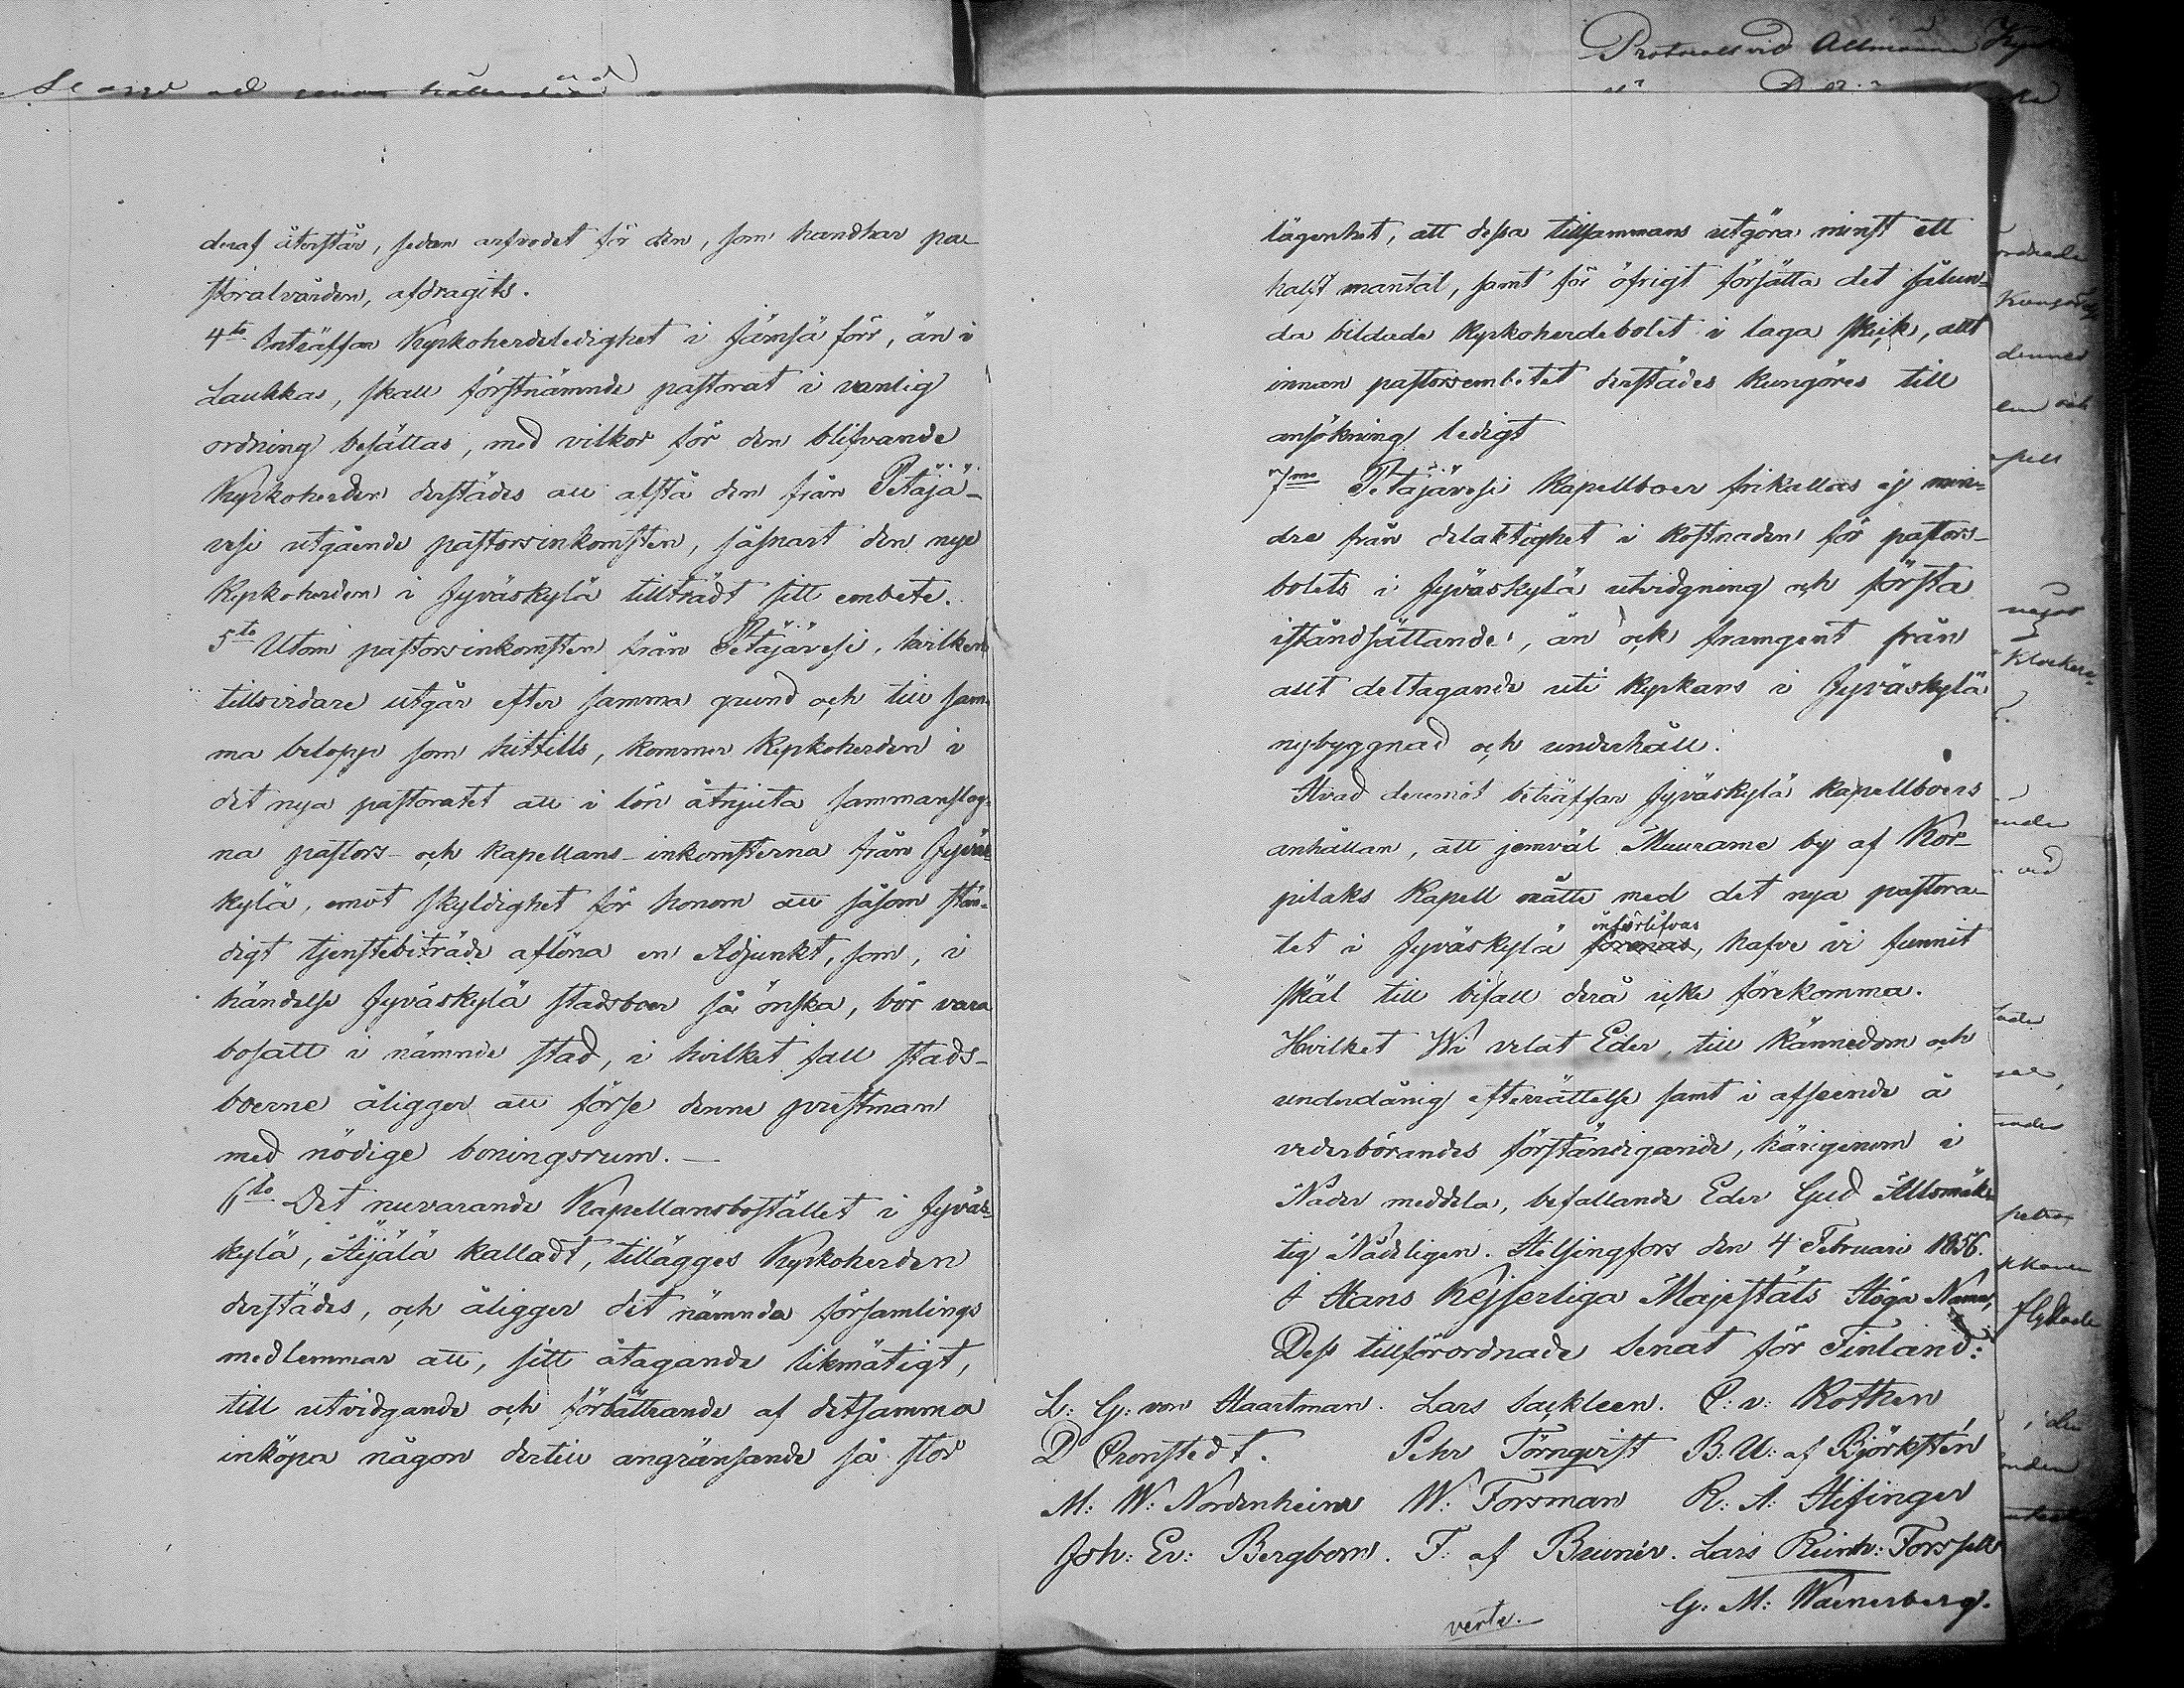 Protocoll vid Allmänna
deraf återstår, sedan arfvodet för den, som handhar pa-
storalvården, afdragits.
4to Inträffar Kyrkoherdeledighet i Jämsä förr, än i
Laukkas, skall förstnämnde pastorat i vanlig
ordning besättas, med vilkor för den blifvande
Kyrkoherden derstädes att afstå den från Petäjä-
vesi utgående pastorsinkomsten, såsnart den nye
Kyrkoherden i Jyväskylä tillträdt sitt embete.
5to Utom pastorsinkomsten från Petäjävesi, hvilken
tillsvidare utgår efter samma grund och till sam-
ma belopp som hittills, kommer Kyrkoherden i
det nya pastoratet att i lön åtnjuta sammanslag-
na pastors- och kapellans-inkomsterna från Jyväs-
kylä, emot skyldighet för honom att såsom stän-
digt tjenstebiträde aflöna en Adjunkt, som, i
händelse Jyväskylä stadsboer så önska, bör vara
bosatt i nämnde stad, i hvilket fall stads-
boerne åligger att förse denne prestman
med nödige boningsrum. —
6to Det nuvarande Kapellansbostället i Jyväs-
kylä, Äijälä kalladt, tillägges Kyrkoherden
derstädes, och åligger det nämnda församlings
medlemmar att, sitt åtagande likmätigt,
till utvidgande och förbättrande af detsamma
inköpa någon dertill angränsande så stor
lägenhet, att dessa tillsammans utgöra minst ett
halft mantal, samt för öfrigt försätta det sålun-
da bildade Kyrkoherdebolet i laga skick, allt
innan pastorsembetet derstädes kungöres till
ansökning ledigt
7mo Petäjävesi Kapellboer frikallas ej min-
dre från delaktighet i kostnaden för pastors-
bolets i Jyväskylä utvidgning och första
iståndsättande, än ock framgent från
allt deltagande uti kyrkans i Jyväskylä
nybyggnad och underhåll.
Hvad deremot beträffar Jyväskylä kapellboers
anhållan, att jemväl Muurame by af Kor-
pilaks Kapell måtte med det nya pastora-
införlifvas
tet i Jyväskylä förenas, hafve vi funnit
skäl till bifall derå icke förekomma.
Hvilket Wi velat Eder, till kännedom och
underdånig efterrättelse samt i afseende å
vederbörandes förständigande, härigenom i
Nåder meddela, befallande Eder Gud Allsmäk-
tig Nådeligen. Helsingfors den 4 Februari 1856.
I Hans Kejserliga Majestäts Höga Namn,
Dess tillförordnade Senat för Finland:
L: G: von Haartman. Lars Sackleen. C: v: Kothen
D Cronstedt. Pehr Törnqvist B: U: af Björkstén
M: W: Nordenheim W: Forsman R: A: Hisinger
Joh: Er: Bergbom. F: af Brunér. Lars Reinh: Forssell
G: M: Waenerberg.
verte.